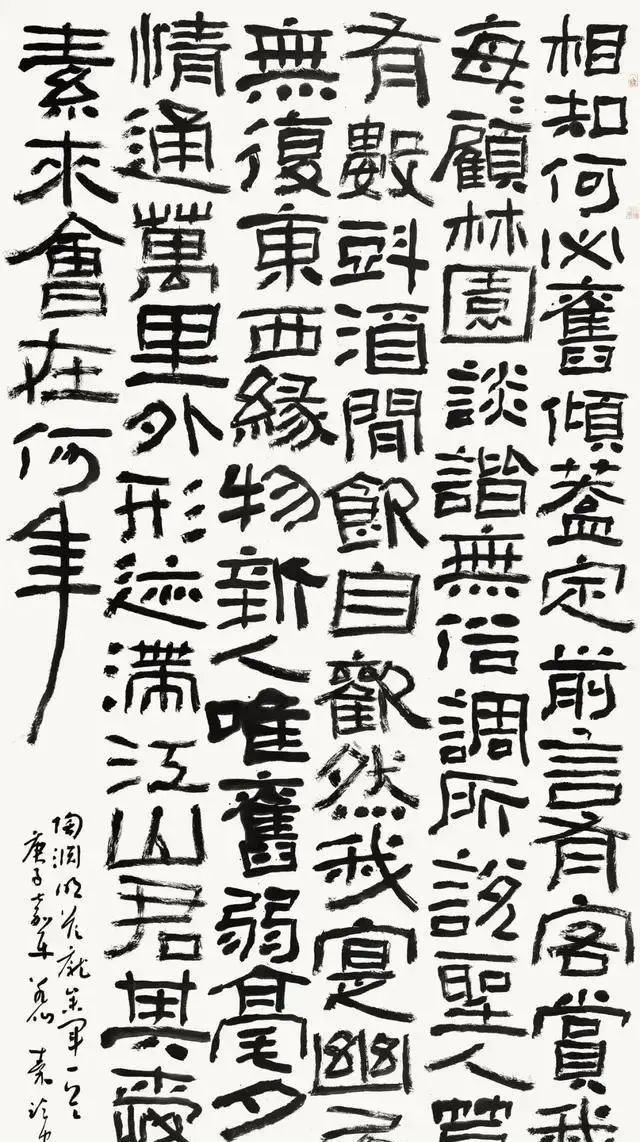 相知何必舊傾蓋定前言有客賞我
每〻顧林園談諧無俗調所説聖人
有數斟酒間飲自歡然我寔幽
無復東西緣物新人唯舊弱毫夕
情通萬里外形迹滯江山君其愛
素來會在何年
陶淵明答龐參軍一首
庚子嘉平